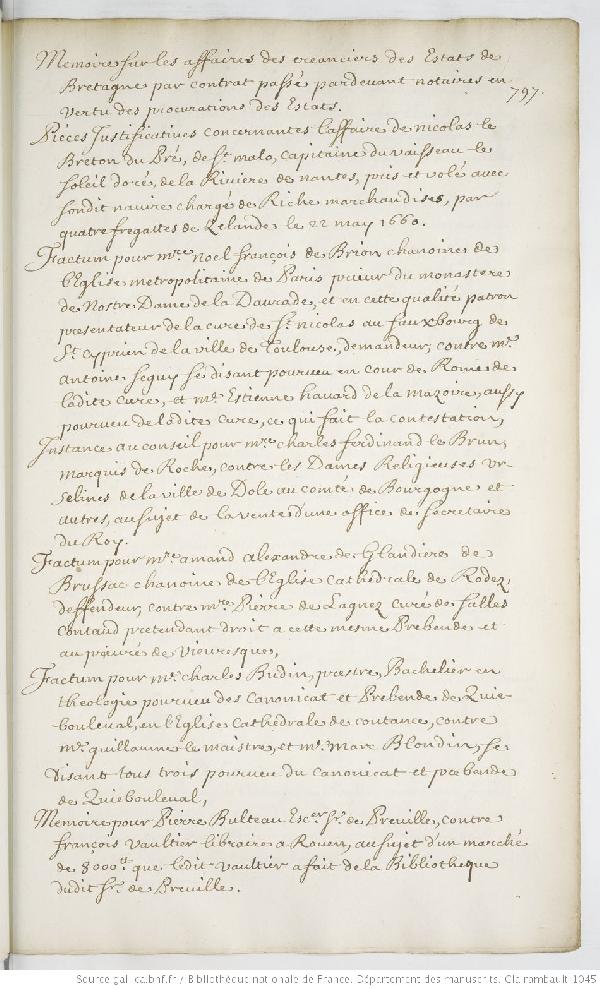 Memoire sur les affaires des creanciers des Estats de
Bretagne par contrat passé pardevant notaires en
vertu des procurations des Estats.
797.
Pieces Justificatives concernantes l'affaire de nicolas le
Breton du Pré, de St. malo, capitaine du vaisseau le
soleil doré, de la Riviere de nantes, pris et volé avec
sondit navire chargé de Riche marchandises, par
quatre fregattes de Zelande le 22 may 1660.
Factum pour mre. noel françois de Brion chanoine de
l'Eglise metropolitaine de Paris prieur du monastere
de Nostre Dame de la Daurade, et en cette qualité patron
presentateur de la cure de St. nicolas au fauxbourg de
St. cyprien de la ville de Toulouse, demandeur, contre mre.
antoine seguy se disant pourveu en cour de Rome de
ladite cure, et mre. Estienne havard de la mazoire, aussy
pourveu de ladite cure, ce qui fait la contestation,
Instance au conseil pour mre. charles ferdinand le Brun,
marquis de Roche, contre les Dames Religieuses Ur-
selines de la ville de Dole au comté de Bourgogne et
autres, au sujet de la vente d'une office de secretaire
du Roy.
Factum pour mre. amand alexandre de Glandiere de
Brussac chanoine de l'Eglise cathedrale de Rodez,
deffendeur, contre mre. Pierre de Lagnez curé de salles
Contaud pretendant droit a cette mesme Prebende et
au prieuré de vieuresque,
Factum pour mre. charles Budin, prestre, Bachelier en
theologie pourveu des Canonicat et Prebende de Quie-
bouleval, en l'Eglise cathedrale de coutance, contre
mre. guillaume le maistre, et mre. Marc Blondin, se
disant tous trois pourveu du canonicat et prebende
de Quiebouleval,
Memoire pour Pierre Bulteau Escer. Sr. de Preville, contre
françois vaultier libraire a Rouen, au sujet d'un marché
de 8000tt. que ledit vaultier a fait de la Bibliotheque
dudit Sr. de Preville.
Source gallica.bnf.fr / Bibliothèque nationale de France. Département des manuscrits. Clairambault 1045